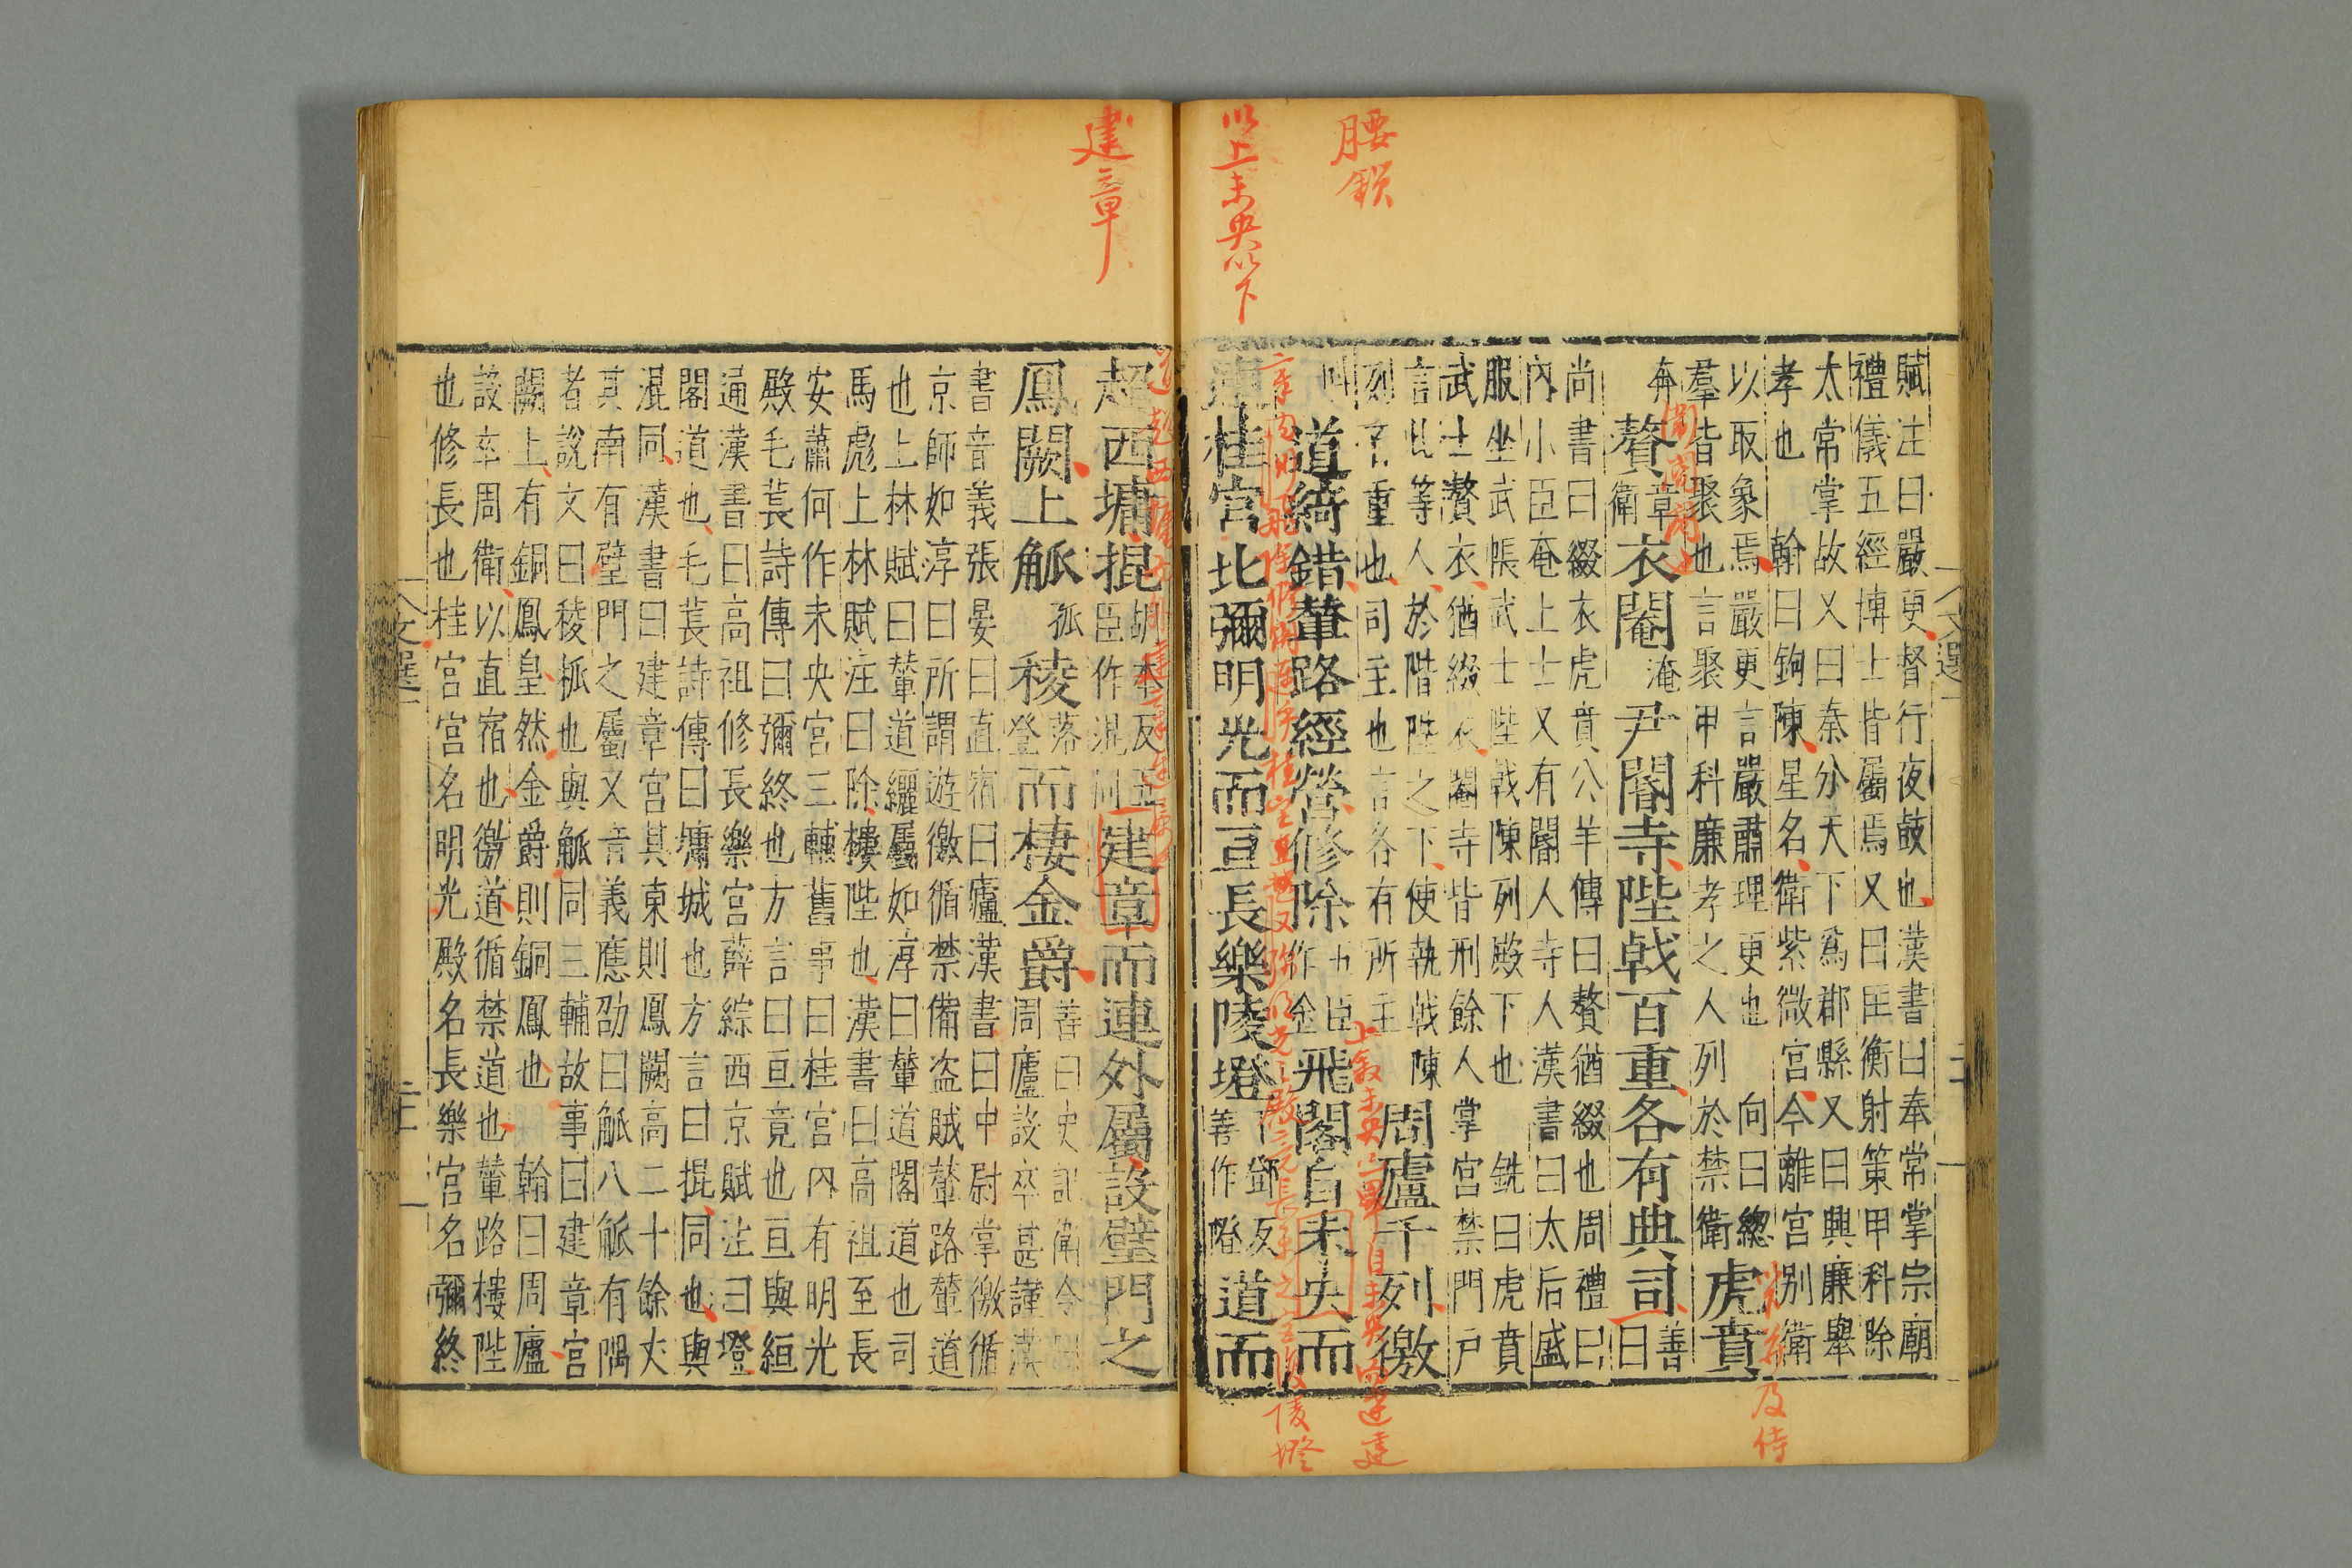 腰鎖
以上未央以下
賦注曰嚴更督行夜鼓也漢書曰奉常掌宗廟
禮儀五經博士皆屬焉又曰匡衡射策甲科除
太常掌故又曰秦分天下爲郡縣又曰興廉舉
孝也 翰曰鉤陳星名衛紫微宮今離宮別衛
以取象焉嚴更言嚴肅理更也 向曰總
羣皆聚也言聚甲科廉孝之人列於禁衛
虎賁
奔贅章衛衣閹淹尹閽寺陛戟百重各有典司善曰
尚書曰綴衣虎賁公羊傳曰贅猶綴也周禮曰
內小臣奄上士又有閽人寺人漢書曰太后盛
服坐武帳武士陛戟陳列殿下也 銑曰虎賁
武士贅衣猶綴衣閽寺皆刑餘人掌宮禁門戶
言此等人於階陛之下使執戟陳
列百重也司主也言各有所主
周廬千列徼
叫道綺錯輦路經營修除五臣作金飛閣自未央而
連桂宮北彌明光而亘長樂陵墱丁鄧反善作隥道而
及侍
建章
超西墉掍胡本反五臣作混同建章而連外屬設璧門之
鳳闕上觚孤稜落登而棲金爵善曰史記衛令曰周廬設卒甚謹漢
書音義張晏曰直宿曰廬漢書曰中尉掌徼循
京師如淳曰所謂遊徼循禁備盜賊輦路輦道
也上林賦曰輦道纚屬如淳曰輦道閣道也司
馬彪上林賦注曰除樓陛也漢書曰高祖至長
安蕭何作未央宮三輔舊事曰桂宮內有明光
殿毛萇詩傳曰彌終也方言曰亘竟也亘與絙
通漢書曰高祖修長樂宮薛綜西京賦注曰墱
閣道也毛萇詩傳曰墉城也方言曰掍同也與
混同漢書曰建章宮其東則鳳闕高二十餘丈
其南有璧門之屬又音義應劭曰觚八觚有隅
者說文曰稜柧也與觚同三輔故事曰建章宮
闕上有銅鳳皇然金爵則銅鳳也 翰曰周廬
設卒周衛以直宿也徼道循禁道也輦路樓陛
也修長也桂宮宮名明光殿名長樂宮名彌終